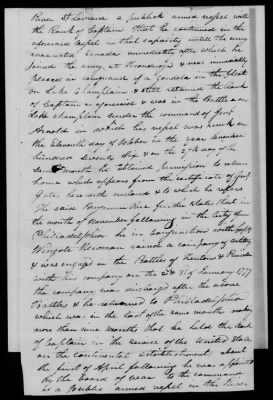 River St Lawrence a publick armed vessel with
the Rank of Captain that he continued in the
aforesaid vessel in that capacity untill the army
evacuated Canada immediately after which he
joined the army at Ticonderoga & was immediately
placed in command of a Gondola in the fleet
on Lake Champlain & still retained the Rank
of Captain as aforesaid & was in the Battle on
Lake Champlain under the command of Genl
Arnold in which his vessel was sunk on
the Eleventh day of October in the year seventeen
hundred seventy six & on the day of the
same month he obtained permission to return
home which appears from the certificate of Genl
Gates herewith enclosed & to which he refers
The said Rice further states that in
the month of November following in the City of
Philadelphia he in conjunction with Capt
Wingate Newman raised a company of artillery
& was engaged in the Battles of Trenton & Princeton
with his company on the 2d & 3d of January 1777
the company was discharged after the above
Battles & he returned to Philadelphia
which was in the last of the same month making
more than nine months that he held the Rank
of Captain in the service of the United States
on the continental establishment about
the first of April following he was appointed
by the board of war to the command
of a publick armed vessel in the